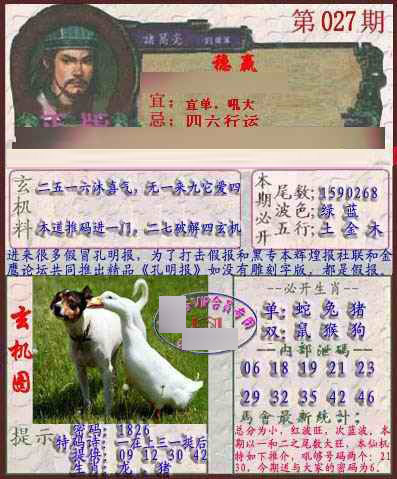 第027期
诸葛亮
德赢
宜：宜单．吼大
忌：四六行运
玄机料
二五一六沐喜气，无一来九它爱四
本道推码进一门，二七破解四玄机
本期必开
尾数；1590268
波色；绿 蓝
五行；土 金 木
进来很多假冒孔明报，为了打击假报和黑专本辉煌报社联和金
鹰论坛共同推出精品《孔明报》如没有雕刻字版，都是假报．
玄机图
必开生肖
单：蛇 兔 猪
双：鼠 猴 狗
内部泄码
06 18 19 21 23
29 32 35 42 46
馬會最新統計：
总分为小，红波旺，次蓝波，本
期以一和二之尾数大旺，本仙机
特如下推介，吼够号码两个：21
30，今期送与大家的密码为6．
提示
密码：1826
特码诗：一在上三一挺后
提供：09 12 30 42
生肖：龙．猪